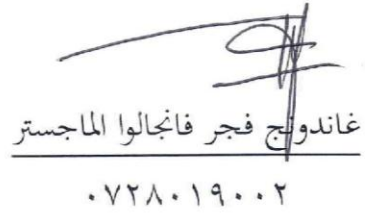 غاندونج فجر فانجالوا الماجستر
٠٧٢٨٠١٩٠٠٢